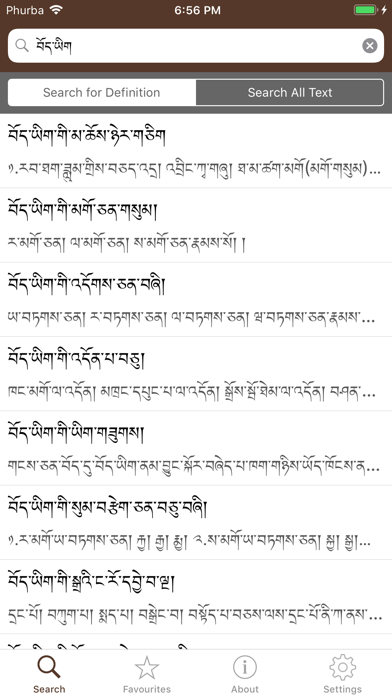 Phurba 6:56 PM
བོད་ཡིག
Search for Definition Search All Text
བོད་ཡིག་གི་མ་ཆོས་ཉེར་གཅིག
༡.རབ་ཐག་ཟླུམ་གྲིས་བཅད་འདྲ། འབྲིང་ཀྭ་གཞུ། ཐ་མ་ཚག་མགོ(མགོ་གསུམ)...
བོད་ཡིག་གི་མགོ་ཅན་གསུམ།
ར་མགོ་ཅན། ལ་མགོ་ཅན། ས་མགོ་ཅན་རྣམས་སོ། །
བོད་ཡིག་གི་འདོགས་ཅན་བཞི།
ཡ་བཏགས་ཅན། ར་བཏགས་ཅན། ལ་བཏགས་ཅན། ཝ་བཏགས་ཅན་རྣམས་...
བོད་ཡིག་གི་འདོན་པ་བཅུ།
ཁང་མགོ་ལ་འདོན། མཁྲང་དཔུང་པ་ལ་འདོན། སྒྲོས་སྤོ་ཐེམ་ལ་འདོན། བཤན་...
བོད་ཡིག་གི་ཡིག་གཟུགས།
གངས་ཅན་བོད་དུ་བོད་ཡིག་ནམ་བྱུང་སྐོར་བཞེད་པ་ཁག་གཉིས་ཡོད་ཁོངས་ན...
བོད་ཡིག་གི་སུམ་བརྩེག་ཅན་བཅུ་བཞི།
༡.ར་མགོ་ཡ་བཏགས་ཅན། རྐྱ། རྒྱ། རྨྱ། ༢.ས་མགོ་ཡ་བཏགས་ཅན། སྐྱ། སྒྱ།...
བོད་ཡིག་གི་སྒྲའི་ང་རོ་དབྱེ་བ་ལྔ།
དྲང་པོ། བཀུག་པ། སྨད་པ། བསྒྲེང་བ། བསྟོད་པ་བཅས་ལས་དྲང་པོ་ནི་ཀ་ནས་...
Search Favourites About Settings